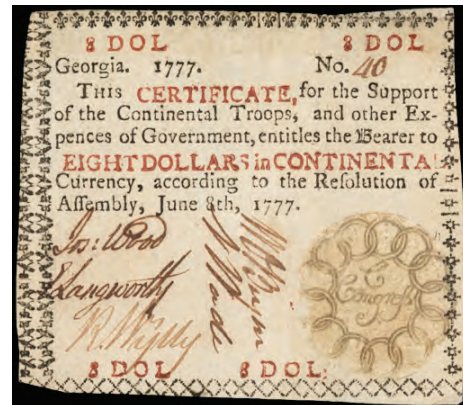 8 DOL 8 DOL
Georgia. 1777. No. 40
THIS CERTIFICATE, for the Support
of the Continental Troops, and other Ex-
pences of Government, entitles the Bearer to
EIGHT DOLLARS in CONTINENTAL
Currency, according to the Resolution of
Assembly, June 8th, 1777.
Jas: Wood
E Langworthy
R. Wylly
Wade
Congress
8 DOL 8 DOL: